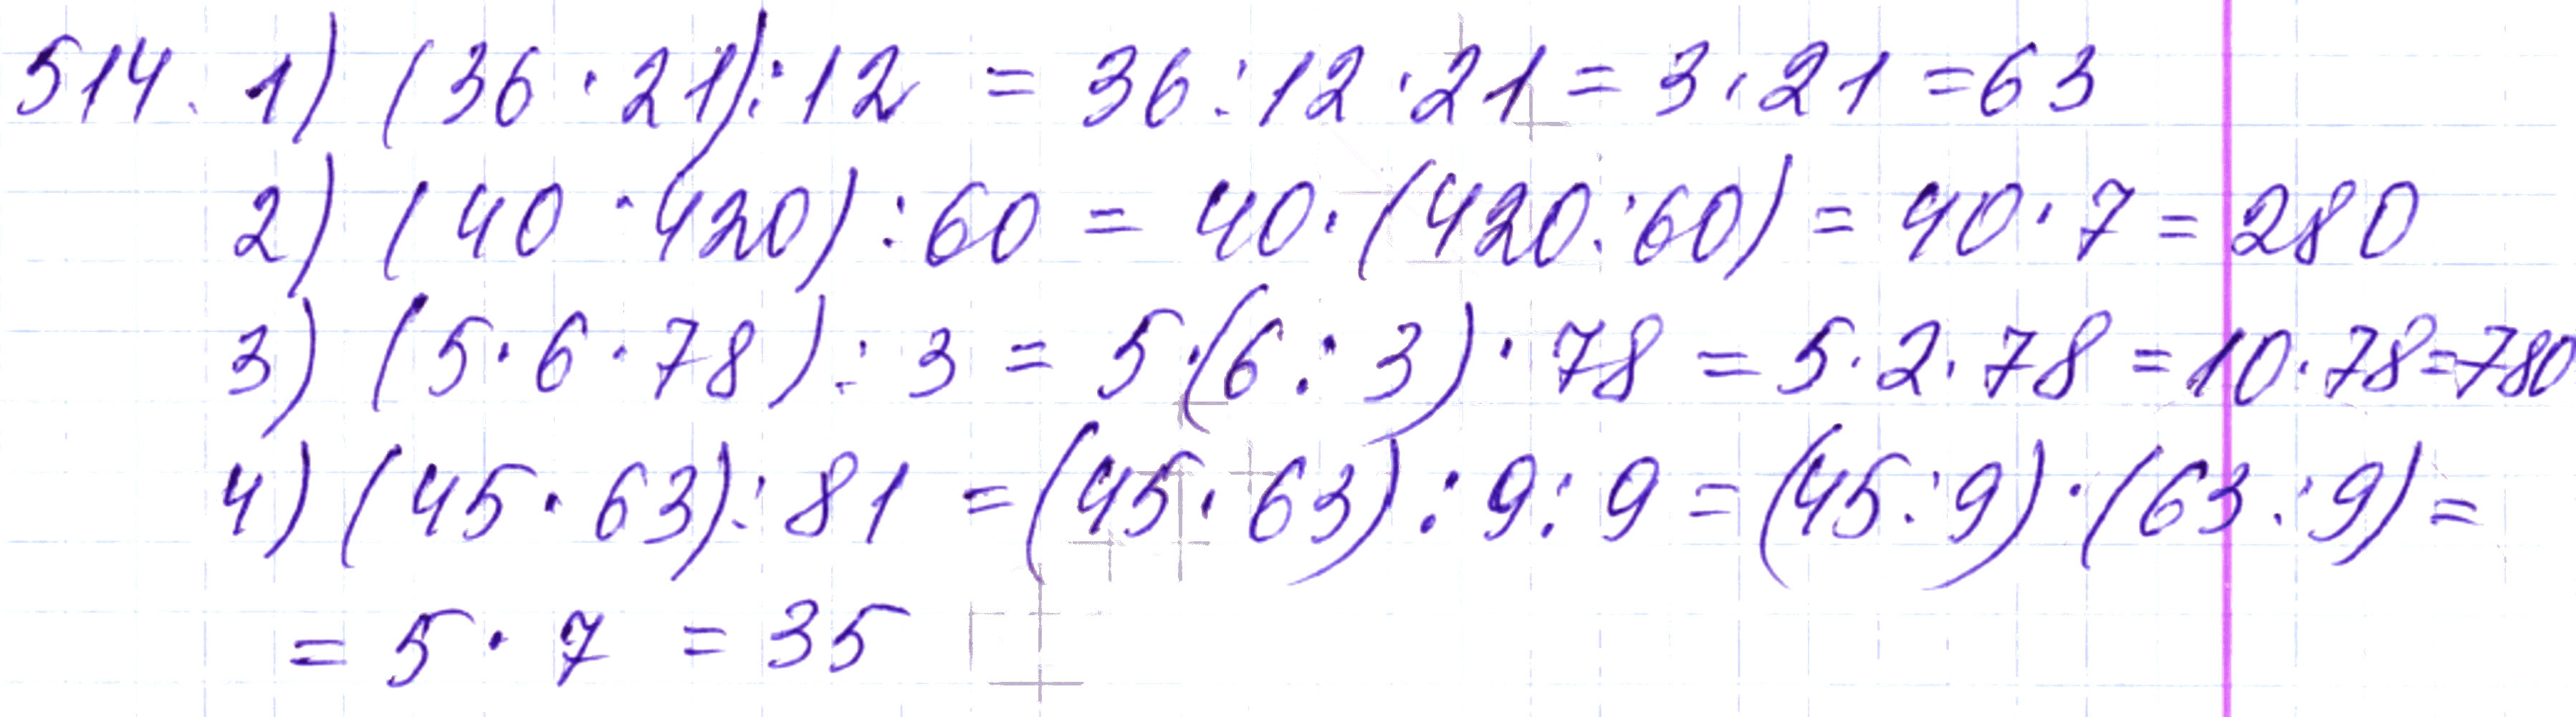 514. 1) (36 · 21) : 12 = 36 : 12 · 21 = 3 · 21 = 63
2) (40 · 420) : 60 = 40 · (420 : 60) = 40 · 7 = 280
3) (5 · 6 · 78) : 3 = 5 · (6 : 3) · 78 = 5 · 2 · 78 = 10 · 78 = 780
4) (45 · 63) : 81 = (45 · 63) : 9 : 9 = (45 : 9) · (63 : 9) =
= 5 · 7 = 35